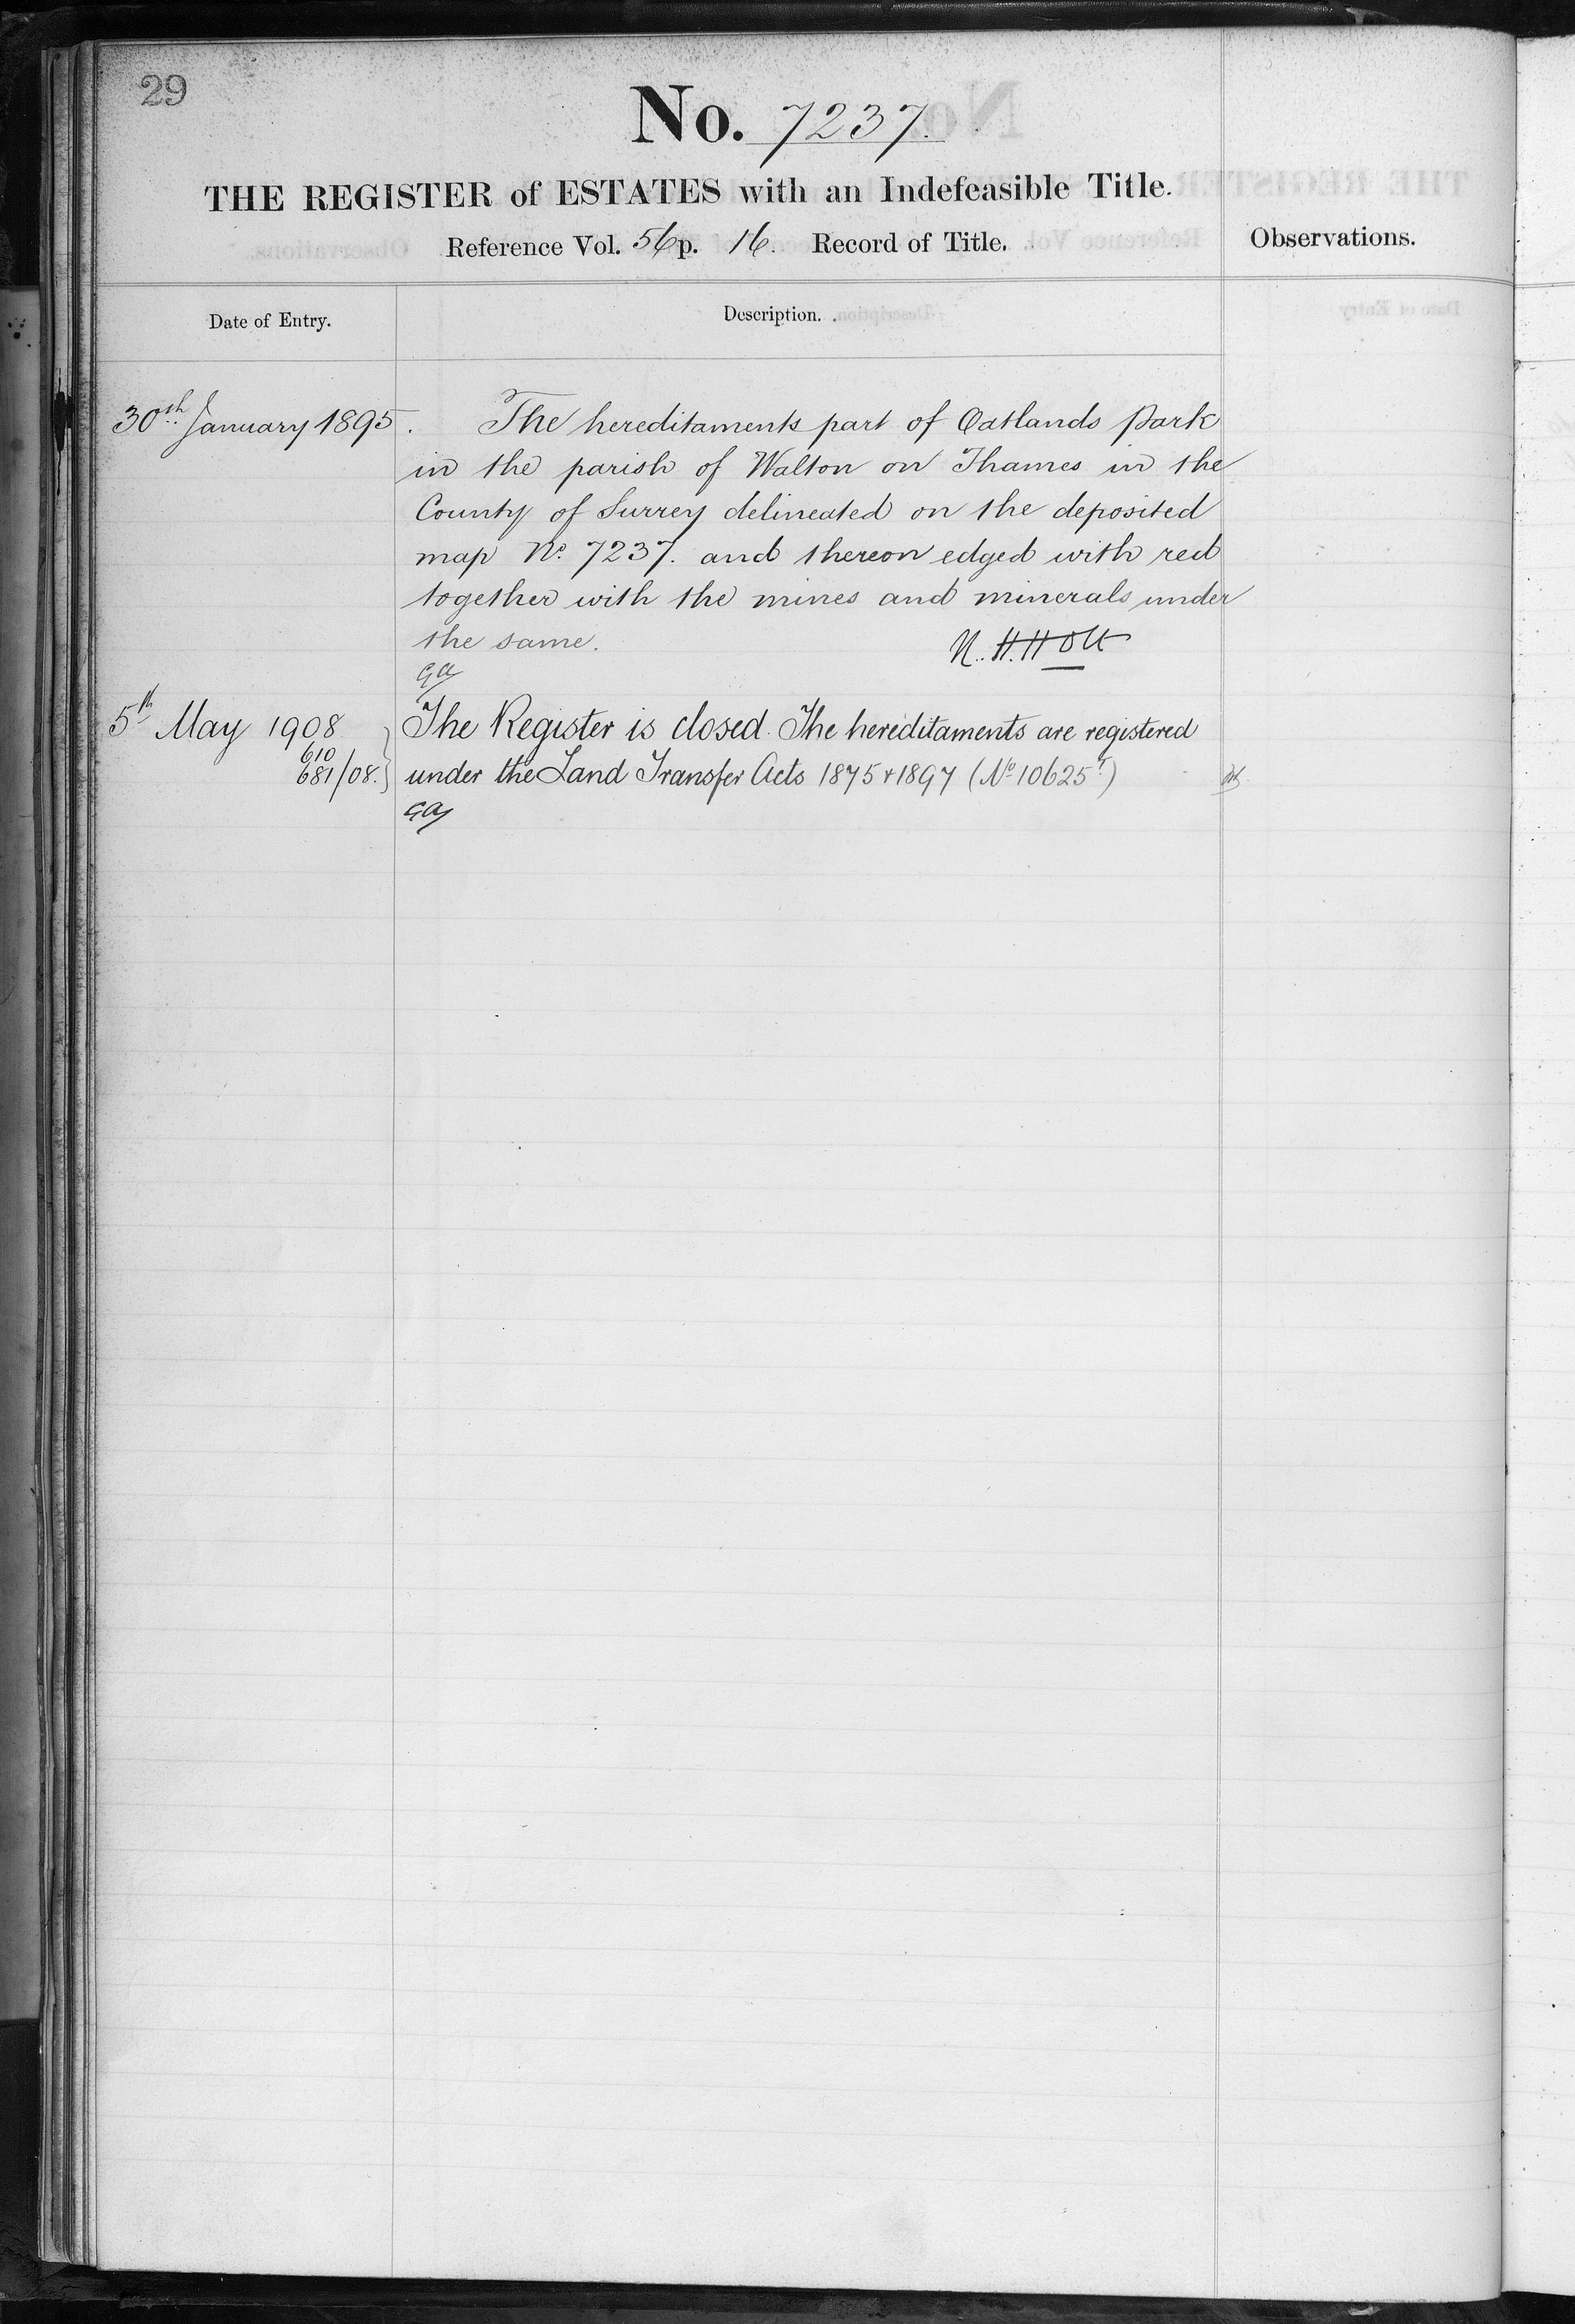 29
No. 7237.
THE REGISTER of ESTATES with an Indefeasible Title.
Reference Vol. 56 p. 16. Record of Title.
Observations.
Date of Entry.
Description.
30th January 1895.
The hereditaments part of Oatlands Park
in the parish of Walton on Thames in the
County of Surrey delineated on the deposited
map No. 7237. and thereon edged with red
together with the mines and minerals under
the same.
N. H. Holt
GA
5th May 1908
610
681/08.
The Register is closed. The hereditaments are registered
under the Land Transfer Acts 1875 & 1897 (No 10625)
GA